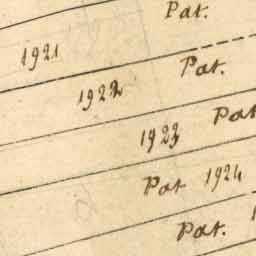 Pat.
1921 Pat.
1922 Pat
1923
Pat 1924
Pat.